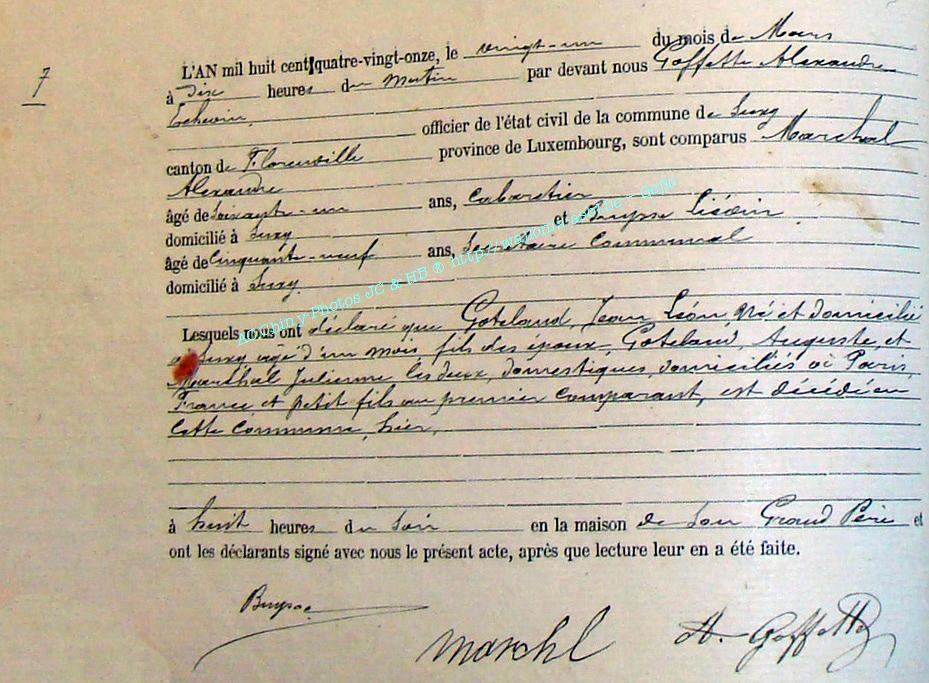 7
L'AN mil huit cent quatre-vingt-onze, le vingt-un du mois de Mars
à dix heures du matin par devant nous Goffette Alexandre
Echevin, officier de l'état civil de la commune de Suxy
canton de Florenville province de Luxembourg, sont comparus Marchal
Alexandre
âgé de soixante-un ans, Cabaretier
domicilié à Suxy et Lisoin
âgé de Cinquante-neuf ans, Secrétaire Communal
domicilié à Suxy.
Lesquels nous ont déclaré que Goteland, Jean Léon né et domicilié
à Suxy agé d'un mois, fils des époux, Goteland, Auguste, et
Maréchal Julienne les deux, domestiques, domiciliés à Paris,
France, et petit fils au premier Comparant, est décédé en
cette Commune, hier,
à huit heures du soir en la maison de son Grand Père et
ont les déclarants signé avec nous le présent acte, après que lecture leur en a été faite.
marchl A. Goffette
Photos JC & HB ® http://